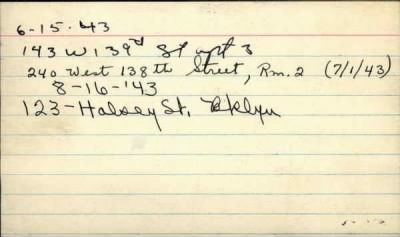 6-15-43
143 W 139d St apt 3
240 West 138th Street, Rm. 2 (7/1/43)
8-16-'43
123-Halsey St, Bklyn